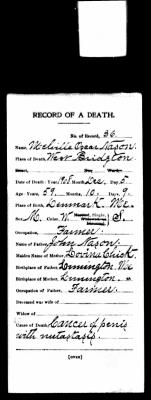 RECORD OF A DEATH.
No. of Record, 36
Name, Melville Oscar Nason.
Place of Death, West Bridgton
Street, No. Ward
Date of Death: Year, 1908, Month, Dec, Day, 5
Age: Years, 59, Months, 10, Days, 9
Place of Birth, Denmark, Me.
Sex, M. Color, W. Married, Single, Widowed or Divorced, S.
Occupation, Farmer.
Name of Father, John Nason.
Maiden Name of Mother, Lovina Chick.
Birthplace of Father, Limington, Me
Birthplace of Mother, Limington. "
Occupation of Father, Farmer.
Deceased was wife of
Widow of
Cause of Death, Cancer of penis
with mutastasis.
[OVER]